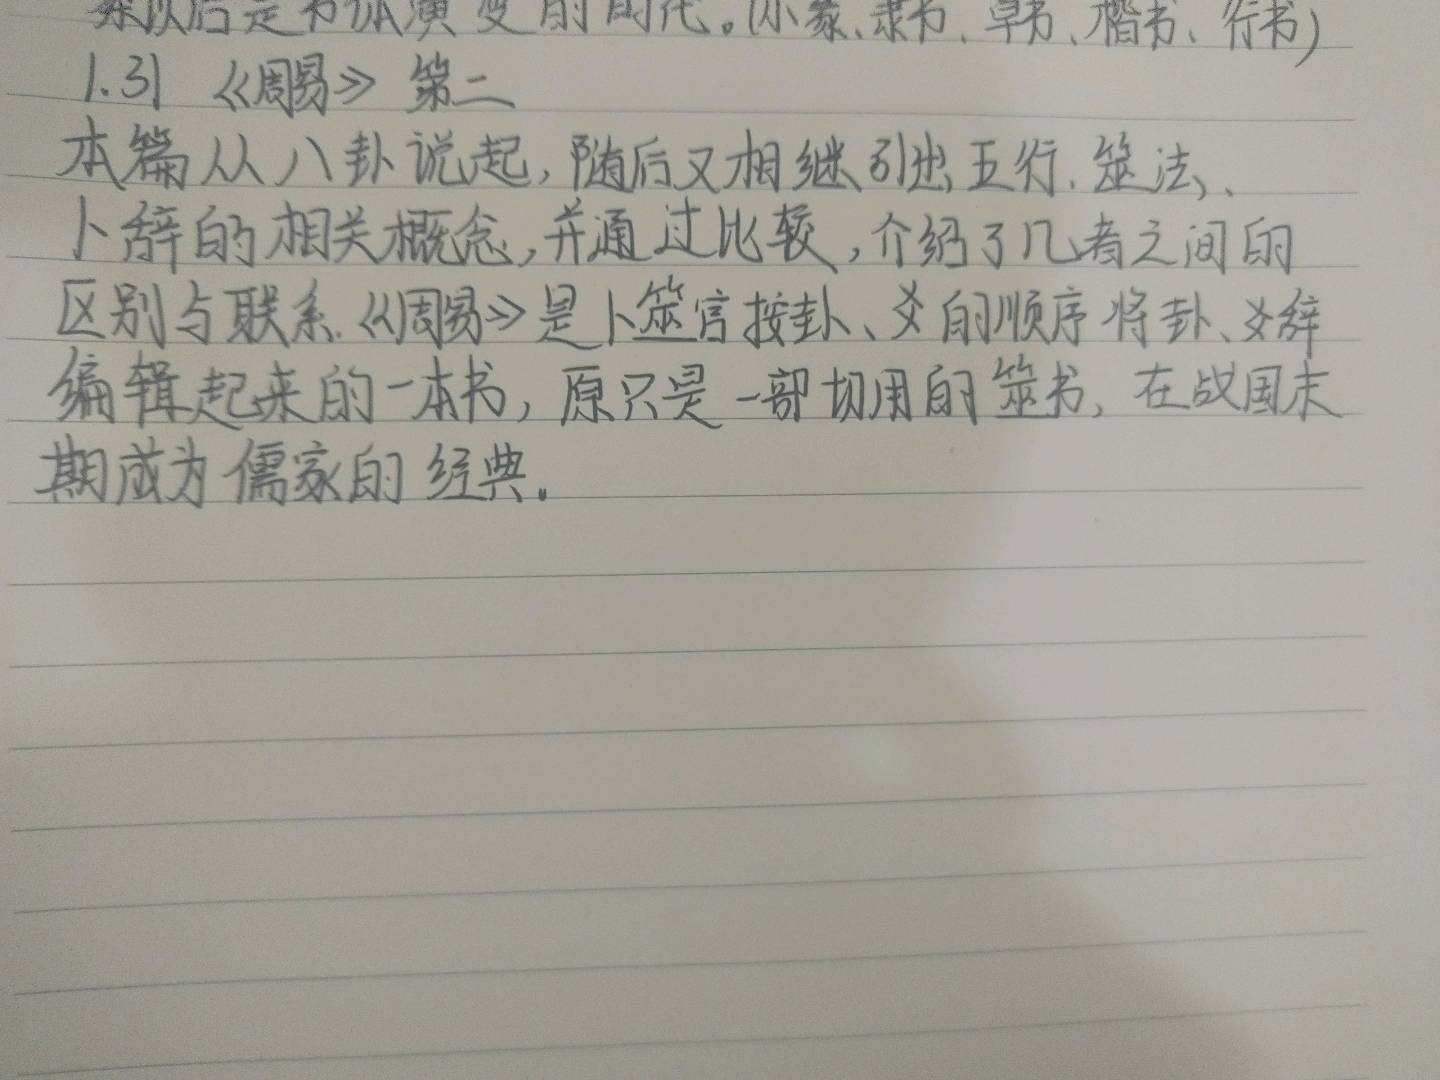 以后是书体演变的时代。(小篆、隶书、草书、楷书、行书)
1.31 《周易》 第二
本篇从八卦说起,随后又相继引出五行、筮法、
卜辞的相关概念,并通过比较,介绍了几者之间的
区别与联系.《周易》是卜筮官按卦、爻的顺序将卦、爻辞
编辑起来的一本书,原只是一部切用的筮书,在战国末
期成为儒家的经典.